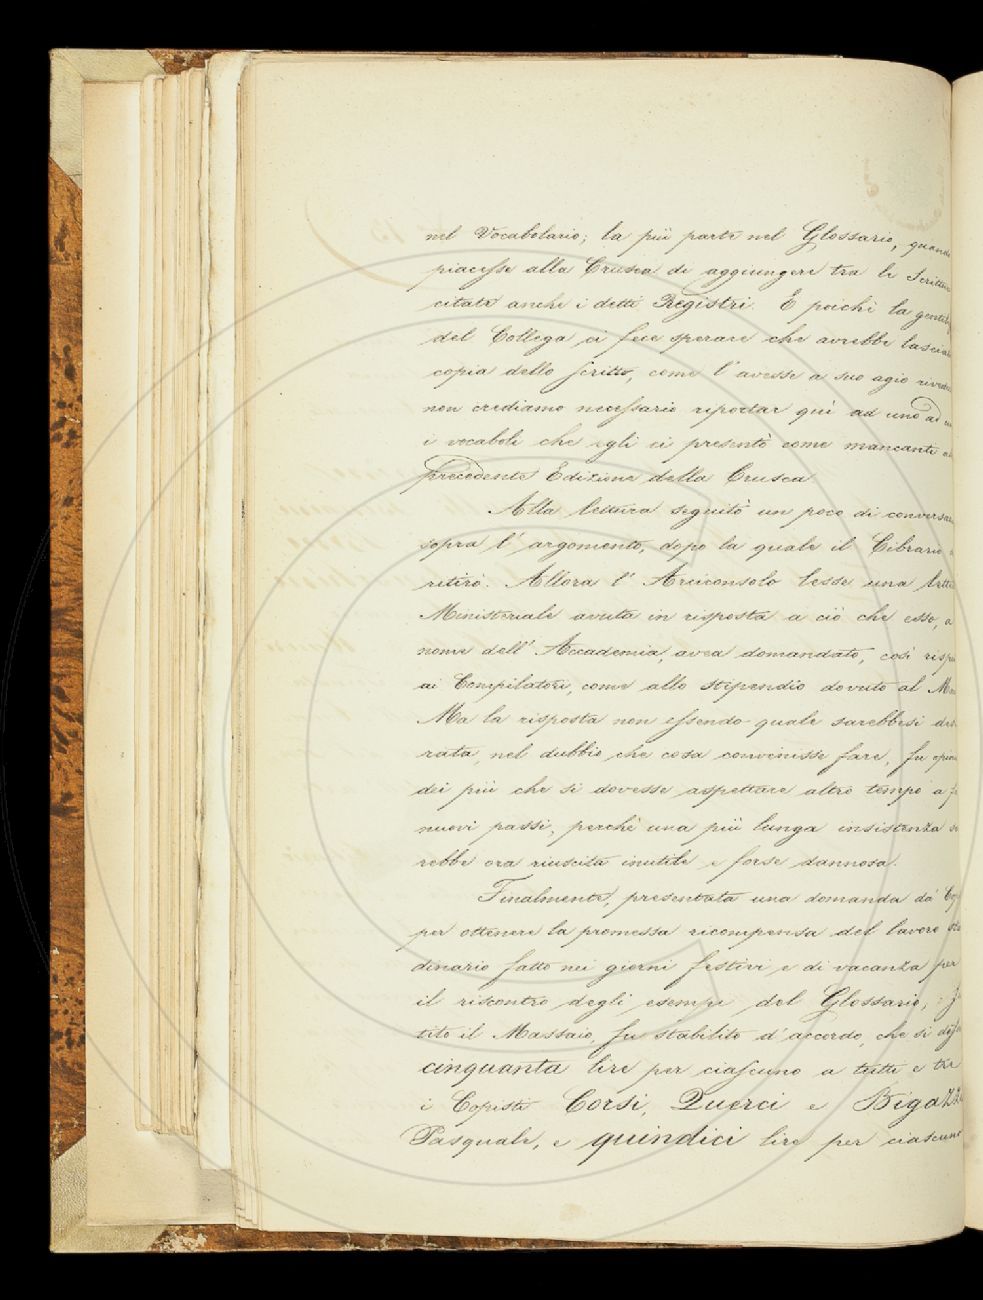 nel Vocabolario; la più parte nel Glossario, quando
piacesse alla Crusca di aggiungere tra le Scritture
citate anche i detti Registri. E poichè la gentil
del Collega ci fece sperare che avrebbe lascia
copia dello scritto, come l'avesse a suo agio rivedu
non crediamo necessario riportar quì ad uno ad u
i vocaboli che egli ci presentò come mancanti a
precedente Edizione della Crusca.
Alla lettura seguitò un poco di conversa
sopra l'argomento, dopo la quale il Cibrario
ritirò. Allora l'Arciconsolo lesse una lette
Ministeriale avuta in risposta a ciò che esso, a
nome dell'Accademia, avea domandato, così risp
ai Compilatori, come allo stipendio dovuto al M
Ma la risposta non essendo quale sarebbesi des
rata, nel dubbio che cosa convenisse fare, fu opin
dei più che si dovesse aspettare altro tempo a f
nuovi passi, perchè una più lunga insistenza s
rebbe ora riuscita inutile e forse dannosa.
Finalmente, presentata una domanda da' Co
per ottenere la promessa ricompensa del lavoro stra
dinario fatto nei giorni festivi e di vacanza per
il riscontro degli esempi del Glossario;
tito il Massaio, fu stabilito d'accordo, che si desse
cinquanta lire per ciascuno a tutti e tre
i Copisti Corsi, Querci e Bigazzi
Pasquale, e quindici lire per ciascuno